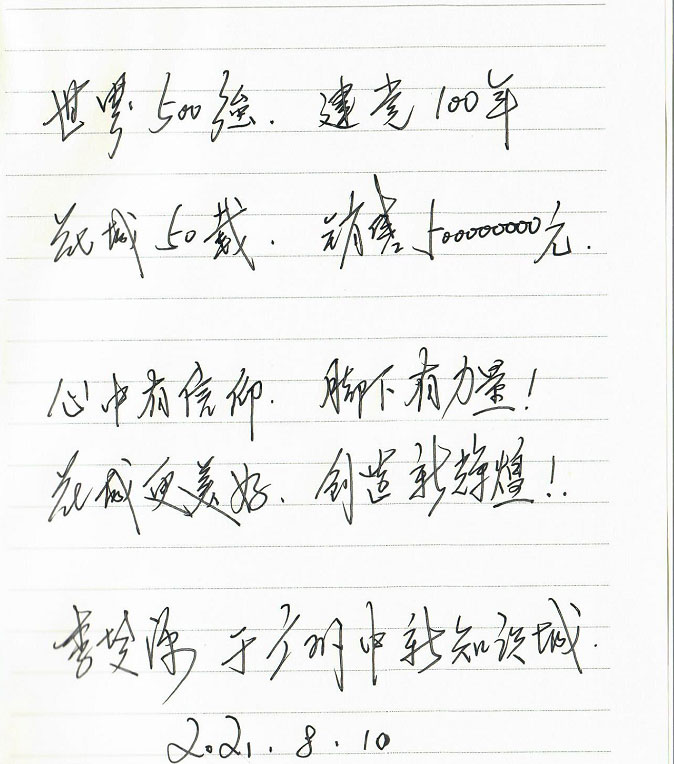 世界500強．建党100年
花城50載．销售500000000元．
心中有信仰．脚下有力量！
花城更美好．创造新辉煌！！
李楚源 于广州中新知识城．
2021.8.10